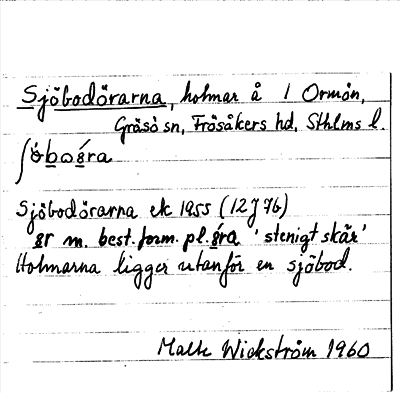 Sjöbodörarna, holmar å l Ormön,
Gräsö sn, Frösåkers hd, Sthlms l.
ʃö́bo͟o͟ra
Sjöbodörarna ek 1955 (12J7b)
ör m. best. form. pl. öra 'stenigt skär'
Holmarna ligger utanför en sjöbod.
Wickström 1960